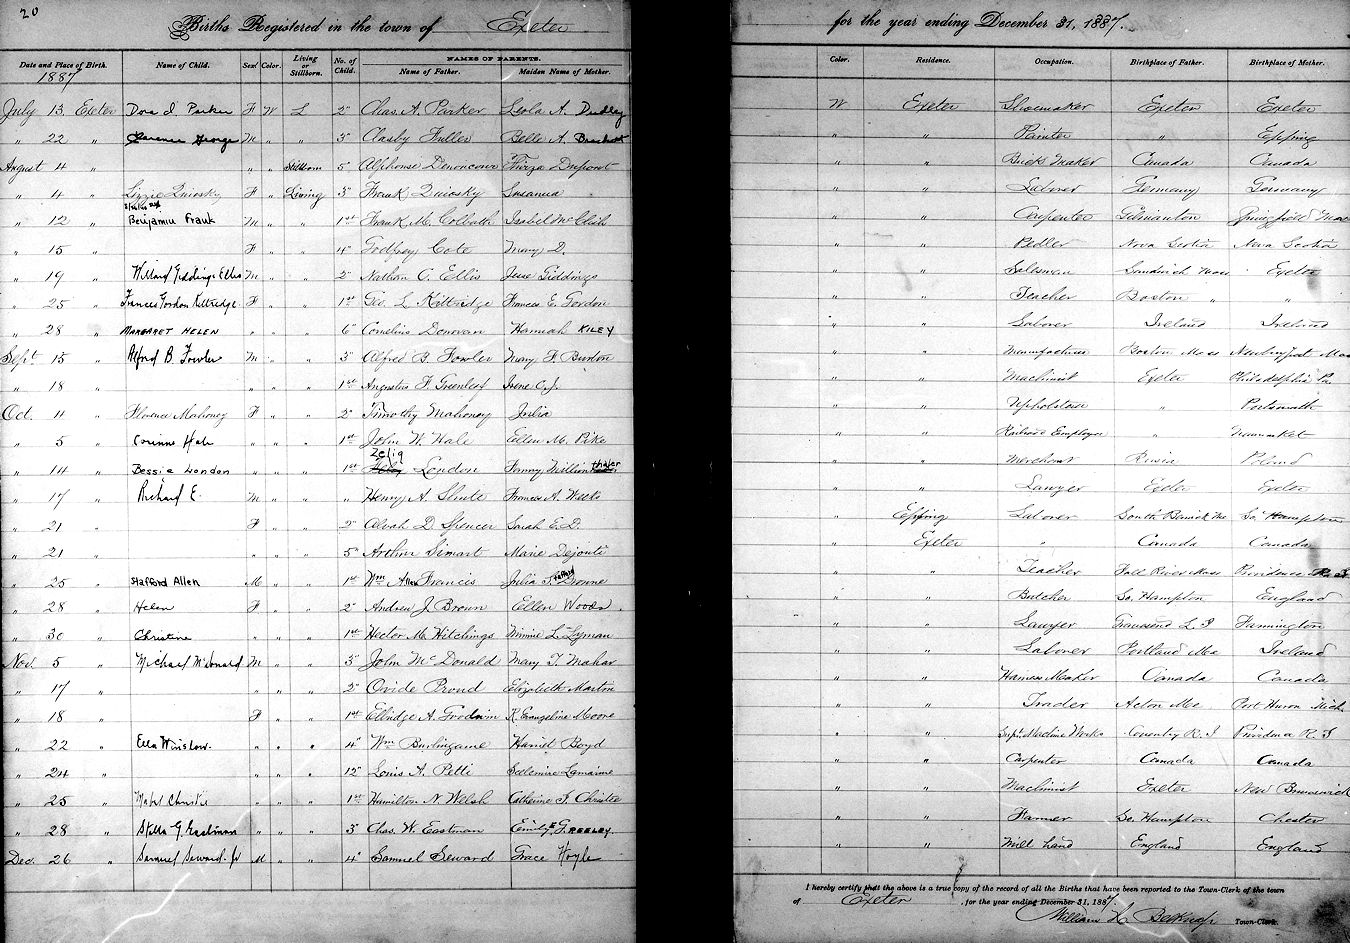 20
Births Registered in the town of Exeter
for the year ending December 31, 1887.
Date and Place of Birth. Name of Child. Sex Color. Living or Stillborn. No. of Child. NAMES OF PARENTS. Name of Father. Maiden Name of Mother. Color. Residence. Occupation. Birthplace of Father. Birthplace of Mother.
1887
July 13, Exeter Dora d Parker F W L 2" Chas. A. Parker Leola A. Dudley W Exeter Shoemaker Exeter Exeter
" 22 " Clarence George M " " 3" Clasby Fuller Belle A. " " Painter " Epping
August 4 " " Stillborn 5" Alphonse Denoncour Thirza Dupont " " Brick Maker Canada Canada
" 4 " Lizzie Quiosky F " Living 3" Frank Quiosky Susanna " " Laborer Germany Germany
" 12 " Benjamin Frank M " " 1st Frank M. Colbath Isabel " " Carpenter Gilmanton Springfield Mass
" 15 " F " " 4" Godfrey Cote Mary D. " " Pedler Nova Scotia Nova Scotia
" 19 " Willard Giddings Ellis M " " 2" Nathan C. Ellis Jesse Giddings " " Salesman Sandwich Mass Exeter
" 25 " Frances Gordon Kittredge F " " 1st Geo. L. Kittridge Frances E. Gordon " " Teacher Boston " "
" 28 " MARGARET HELEN " " " 6" Cornelius Donovan Hannah KILEY " " Laborer Ireland Ireland
Sept. 15 " Alfred B. Fowler M " " 3" Alfred B. Fowler Mary F. Burton " " Manufacturer Boston Mass Newburyport Mass
" 18 " " " " 1st Augustus F Greenleaf Irene C. J. " " Machinist Exeter Philadelphia Pa
Oct. 4 " Florence Mahoney F " " 2" Timothy Mahoney Julia " " Upholsterer " Portsmouth
" 5 " Corinne Hale " " " 1st John W. Hale Ellen M. Pike " " Railroad Employee " Newmarket
" 14 " Bessie London " " " 1st Zelig London Fanny " " Merchant Russia Poland
" 17 " Richard E. M " " " Henry A. Shute Frances A. Weeks " " Lawyer Exeter Exeter
" 21 " F " " 2" Alvah D. Spencer Sarah E. D. " Epping Laborer South Berwick Me So. Hampton
" 21 " " " " 5" Arthur Simart Marie Dejonte " Exeter " Canada Canada
" 25 " Stafford Allen M " " 1st Wm Allen Francis Julia Stafford Drowne " " Teacher Fall River Mass Providence R I
" 28 " Helen F " " 2" Andrew J. Brown Ellen Woods " " Butcher So. Hampton England
" 30 " Christine " " " 1st Hector M. Hitchings Minnie L. Lyman " " Lawyer Farmington
Nov. 5 " Michael McDonald M " " 3" John McDonald Mary T. Mahar " " Laborer Portland Me Ireland
" 17 " " " " 2" Ovide Proud Elizabeth Marton " " Harness Maker Canada Canada
" 18 " F " " 1st Elbridge A. Goodwin R. Evangeline Moore " " Trader Acton Me. Port Huron Mich.
" 22 " Ella Winslow. " " " 4" Wm Burlingame Harriet Boyd " " Supt. Machine Works Coventry R. I Providence R. I
" 24 " " " " 12" Louis A. Petti Lamarine " " Carpenter Canada Canada
" 25 " Mabel Christie " " " 1st Hamilton N. Welsh Catherine F. Christee " " Machinist Exeter New Brunswick
" 28 " Stella G. Eastman " " " 3" Chas. W. Eastman Emily E. GREELEY " " Farmer So. Hampton Chester
Dec. 26 " Samuel Seward Jr M " " 4" Samuel Seward Grace Hoyle " " Mill hand England England
I hereby certify that the above is a true copy of the record of all the Births that have been reported to the Town-Clerk of the town
of Exeter, for the year ending December 31, 1887.
William H. Belknap Town-Clerk.